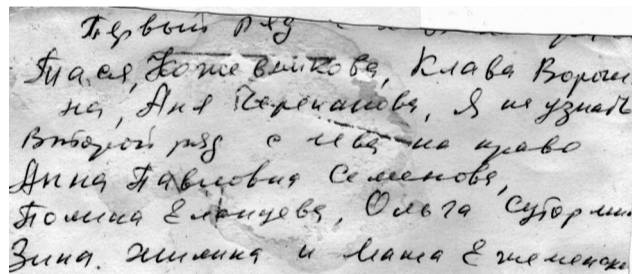 Первый ряд с
Тася, Кожевникова, Клава Ворони
на, Аня Черепанова, Я не узнать
Второй ряд с лева на право
Анна Павловна Семенова,
Полина Еланцева, Ольга
Зина. Жилина и Маша